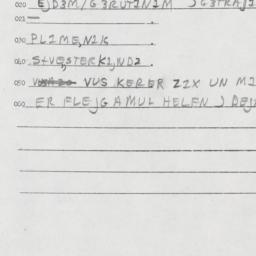 020 EJDEM/GERUTINIM JGETRAJI
021 — .
030 PLIMENIK
040 SIVESTERKINDE .
050 VUS KERER ZIX UN MI
060 ER FLEJG AMUL HELFN J DEJ